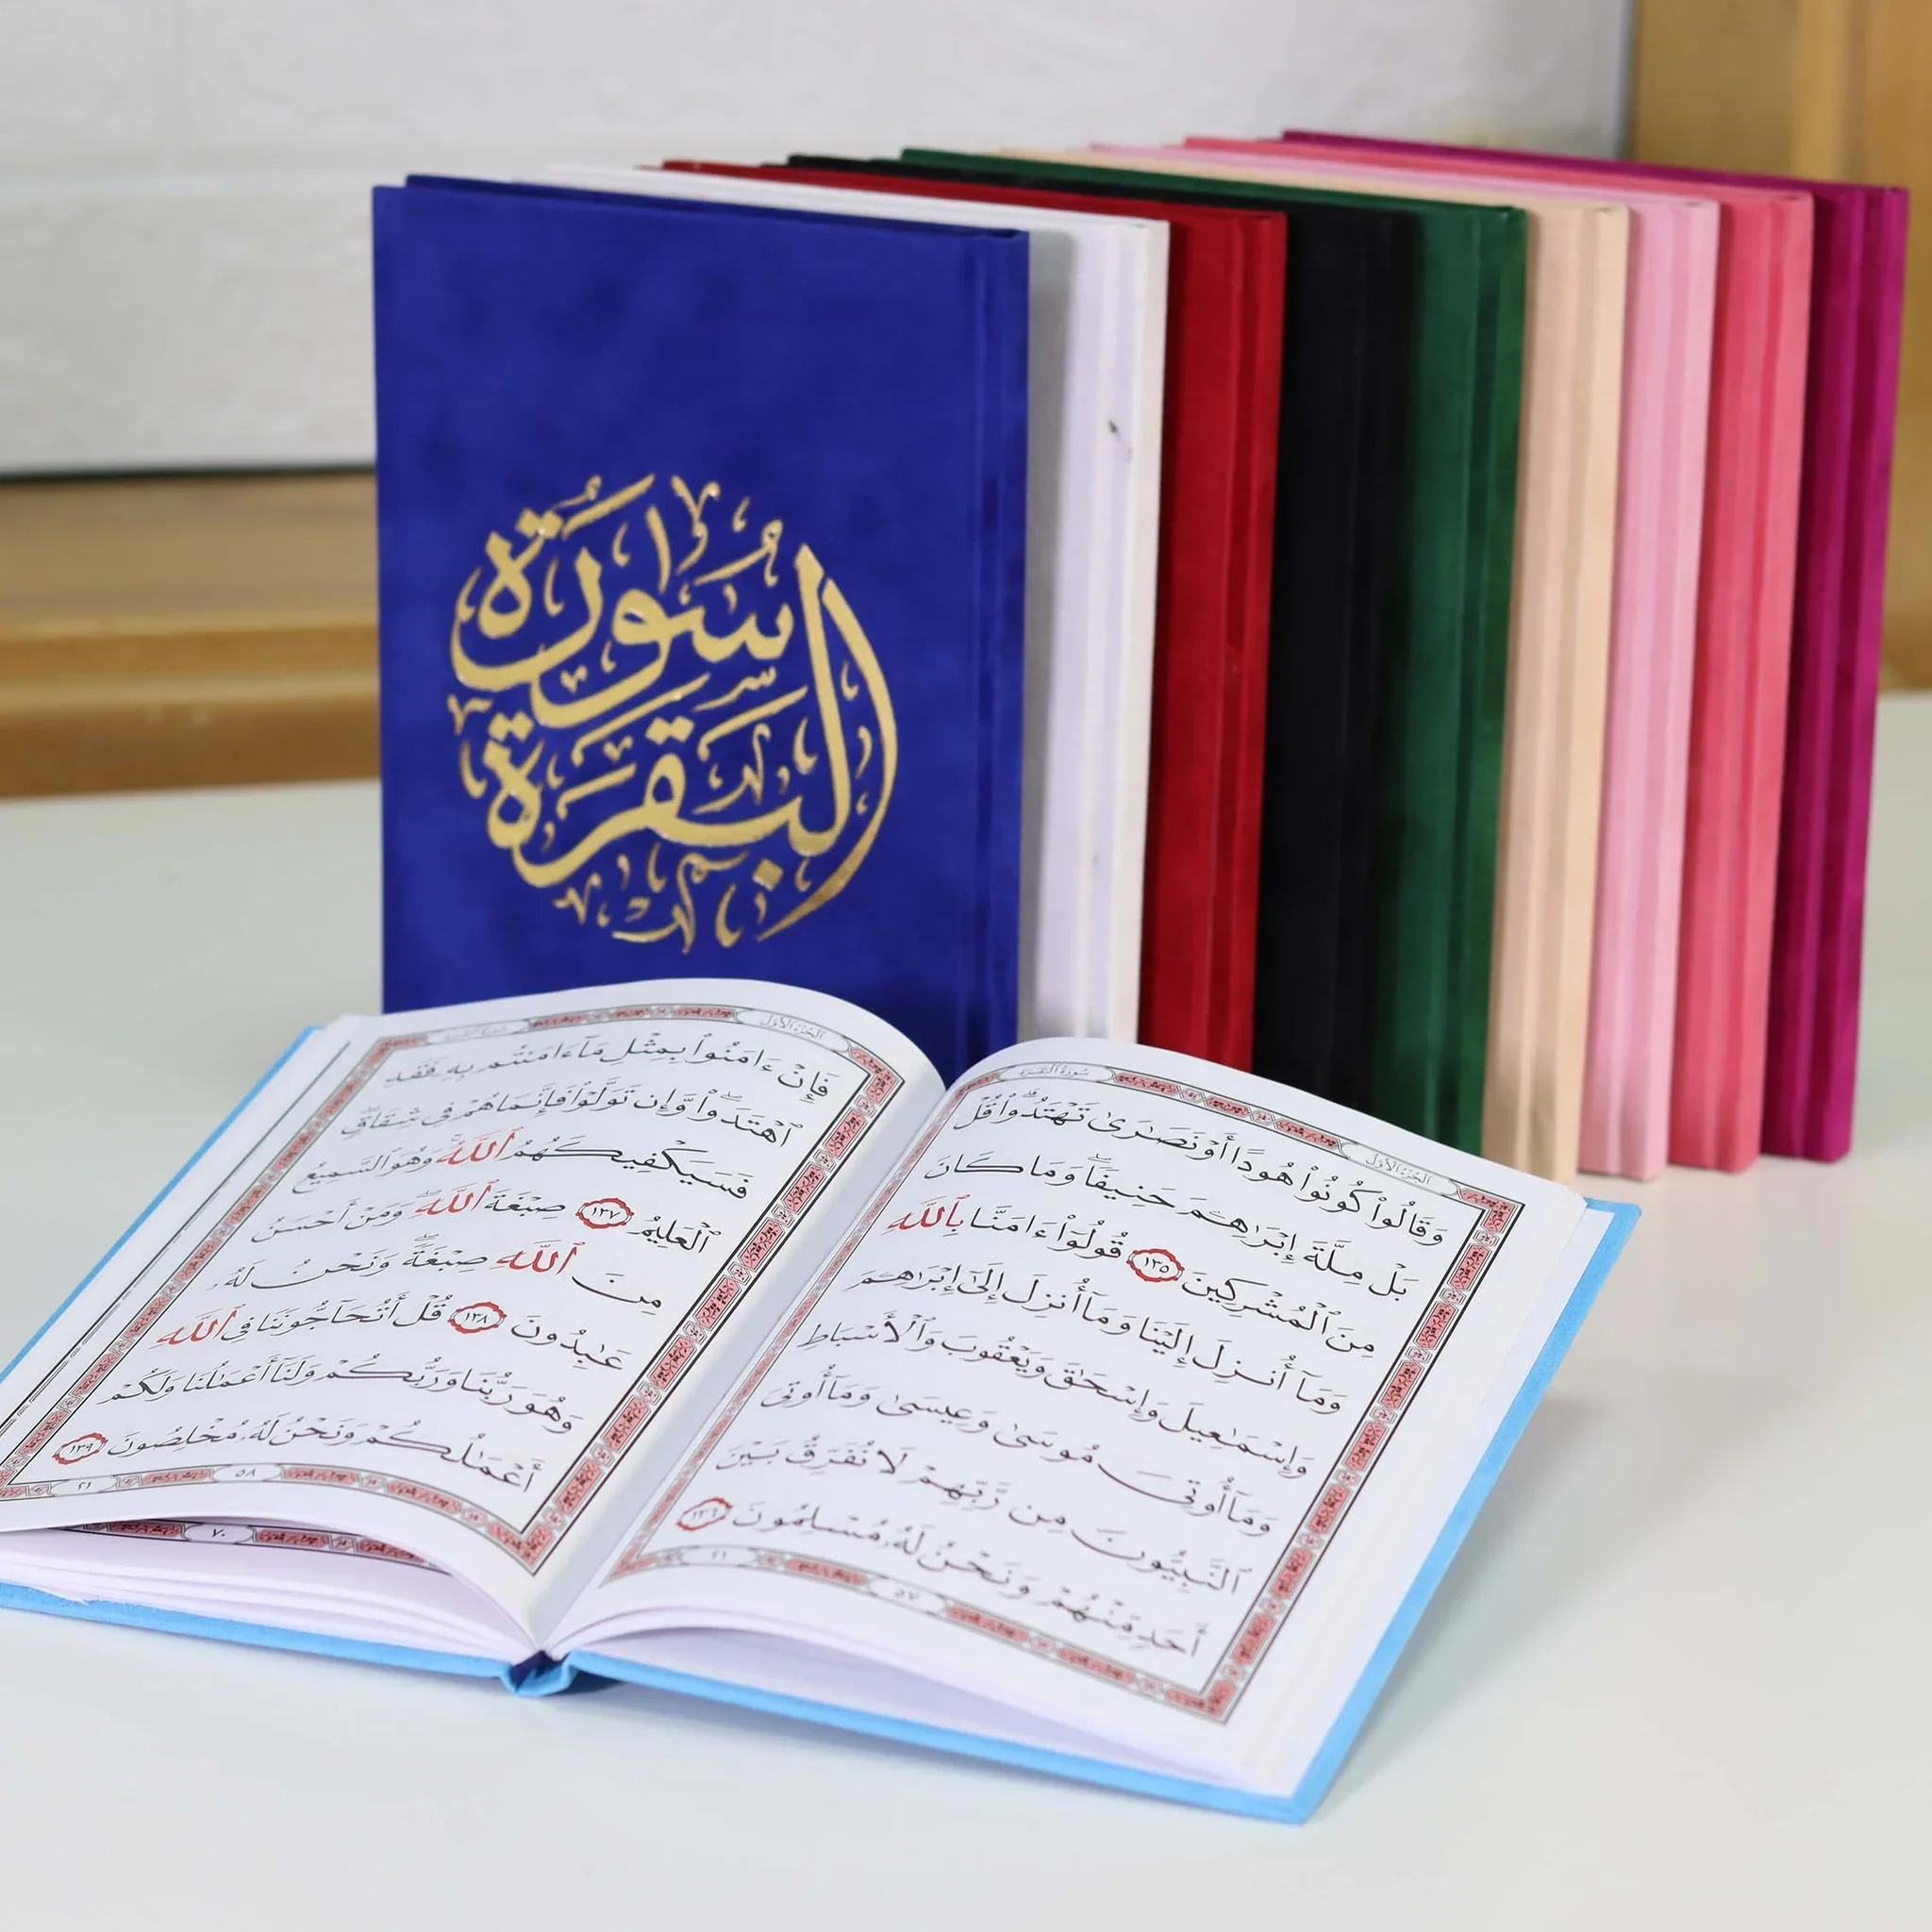 سُورَة
البَقَرَة
سُورَةُ البَقَرَة
الجُزْءُ الأَوَّل
وَقَالُوا۟ كُونُوا۟ هُودًا أَوْ نَصَٰرَىٰ تَهْتَدُوا۟ ۗ قُلْ
بَلْ مِلَّةَ إِبْرَٰهِـۧمَ حَنِيفًا ۖ وَمَا كَانَ
مِنَ ٱلْمُشْرِكِينَ ١٣٥ قُولُوٓا۟ ءَامَنَّا بِٱللَّهِ
وَمَآ أُنزِلَ إِلَيْنَا وَمَآ أُنزِلَ إِلَىٰٓ إِبْرَٰهِـۧمَ
وَإِسْمَٰعِيلَ وَإِسْحَٰقَ وَيَعْقُوبَ وَٱلْأَسْبَاطِ
وَمَآ أُوتِىَ مُوسَىٰ وَعِيسَىٰ وَمَآ أُوتِىَ
ٱلنَّبِيُّونَ مِن رَّبِّهِمْ لَا نُفَرِّقُ بَيْنَ
أَحَدٍ مِّنْهُمْ وَنَحْنُ لَهُۥ مُسْلِمُونَ ١٣٦
٢١
٥٧
الجُزْءُ الأَوَّل
فَإِنْ ءَامَنُوا۟ بِمِثْلِ مَآ ءَامَنتُم بِهِۦ فَقَدِ
ٱهْتَدَوا۟ ۖ وَّإِن تَوَلَّوْا۟ فَإِنَّمَا هُمْ فِى شِقَاقٍ ۖ
فَسَيَكْفِيكَهُمُ ٱللَّهُ ۚ وَهُوَ ٱلسَّمِيعُ
ٱلْعَلِيمُ ١٣٧ صِبْغَةَ ٱللَّهِ ۖ وَمَنْ أَحْسَنُ
مِنَ ٱللَّهِ صِبْغَةً ۖ وَنَحْنُ لَهُۥ
عَٰبِدُونَ ١٣٨ قُلْ أَتُحَآجُّونَنَا فِى ٱللَّهِ
وَهُوَ رَبُّنَا وَرَبُّكُمْ وَلَنَآ أَعْمَٰلُنَا وَلَكُمْ
أَعْمَٰلُكُمْ وَنَحْنُ لَهُۥ مُخْلِصُونَ ١٣٩
٥٨
٢١
٧٠